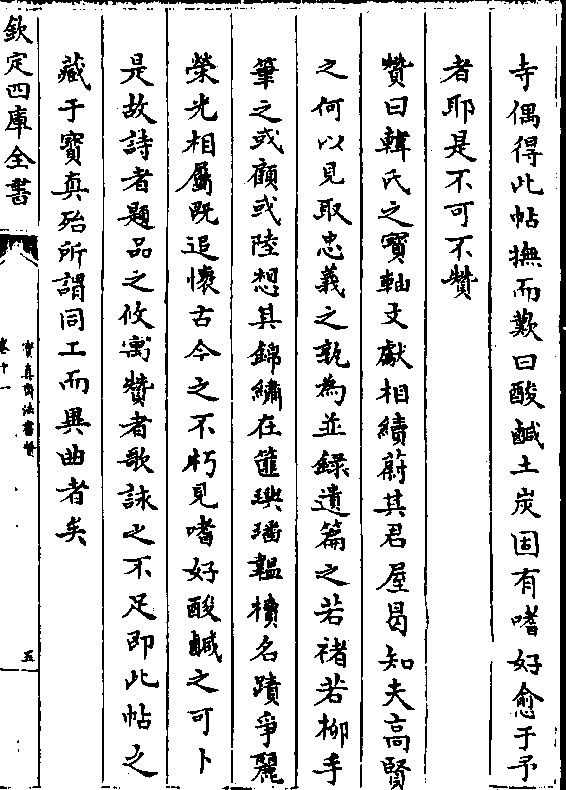 寺偶得此帖撫而歎曰酸鹹土炭固有嗜好愈于予
者耶是不可不贊
贊曰韓氏之寶軸文獻相續蔚其君屋曷知夫高賢
之何以見取忠義之孰為並錄遺篇之若禇若柳手
筆之或顧或陸想其錦繡在篚璵璠韞櫝名蹟爭麗
榮光相屬既追懷古今之不朽見嗜好酸鹹之可卜
是故詩者題品之攸寓贊者歌詠之不足即此帖之
藏于寶真殆所謂同工而異曲者矣
欽定四庫全書
寶真齋法書贊
卷十一
五